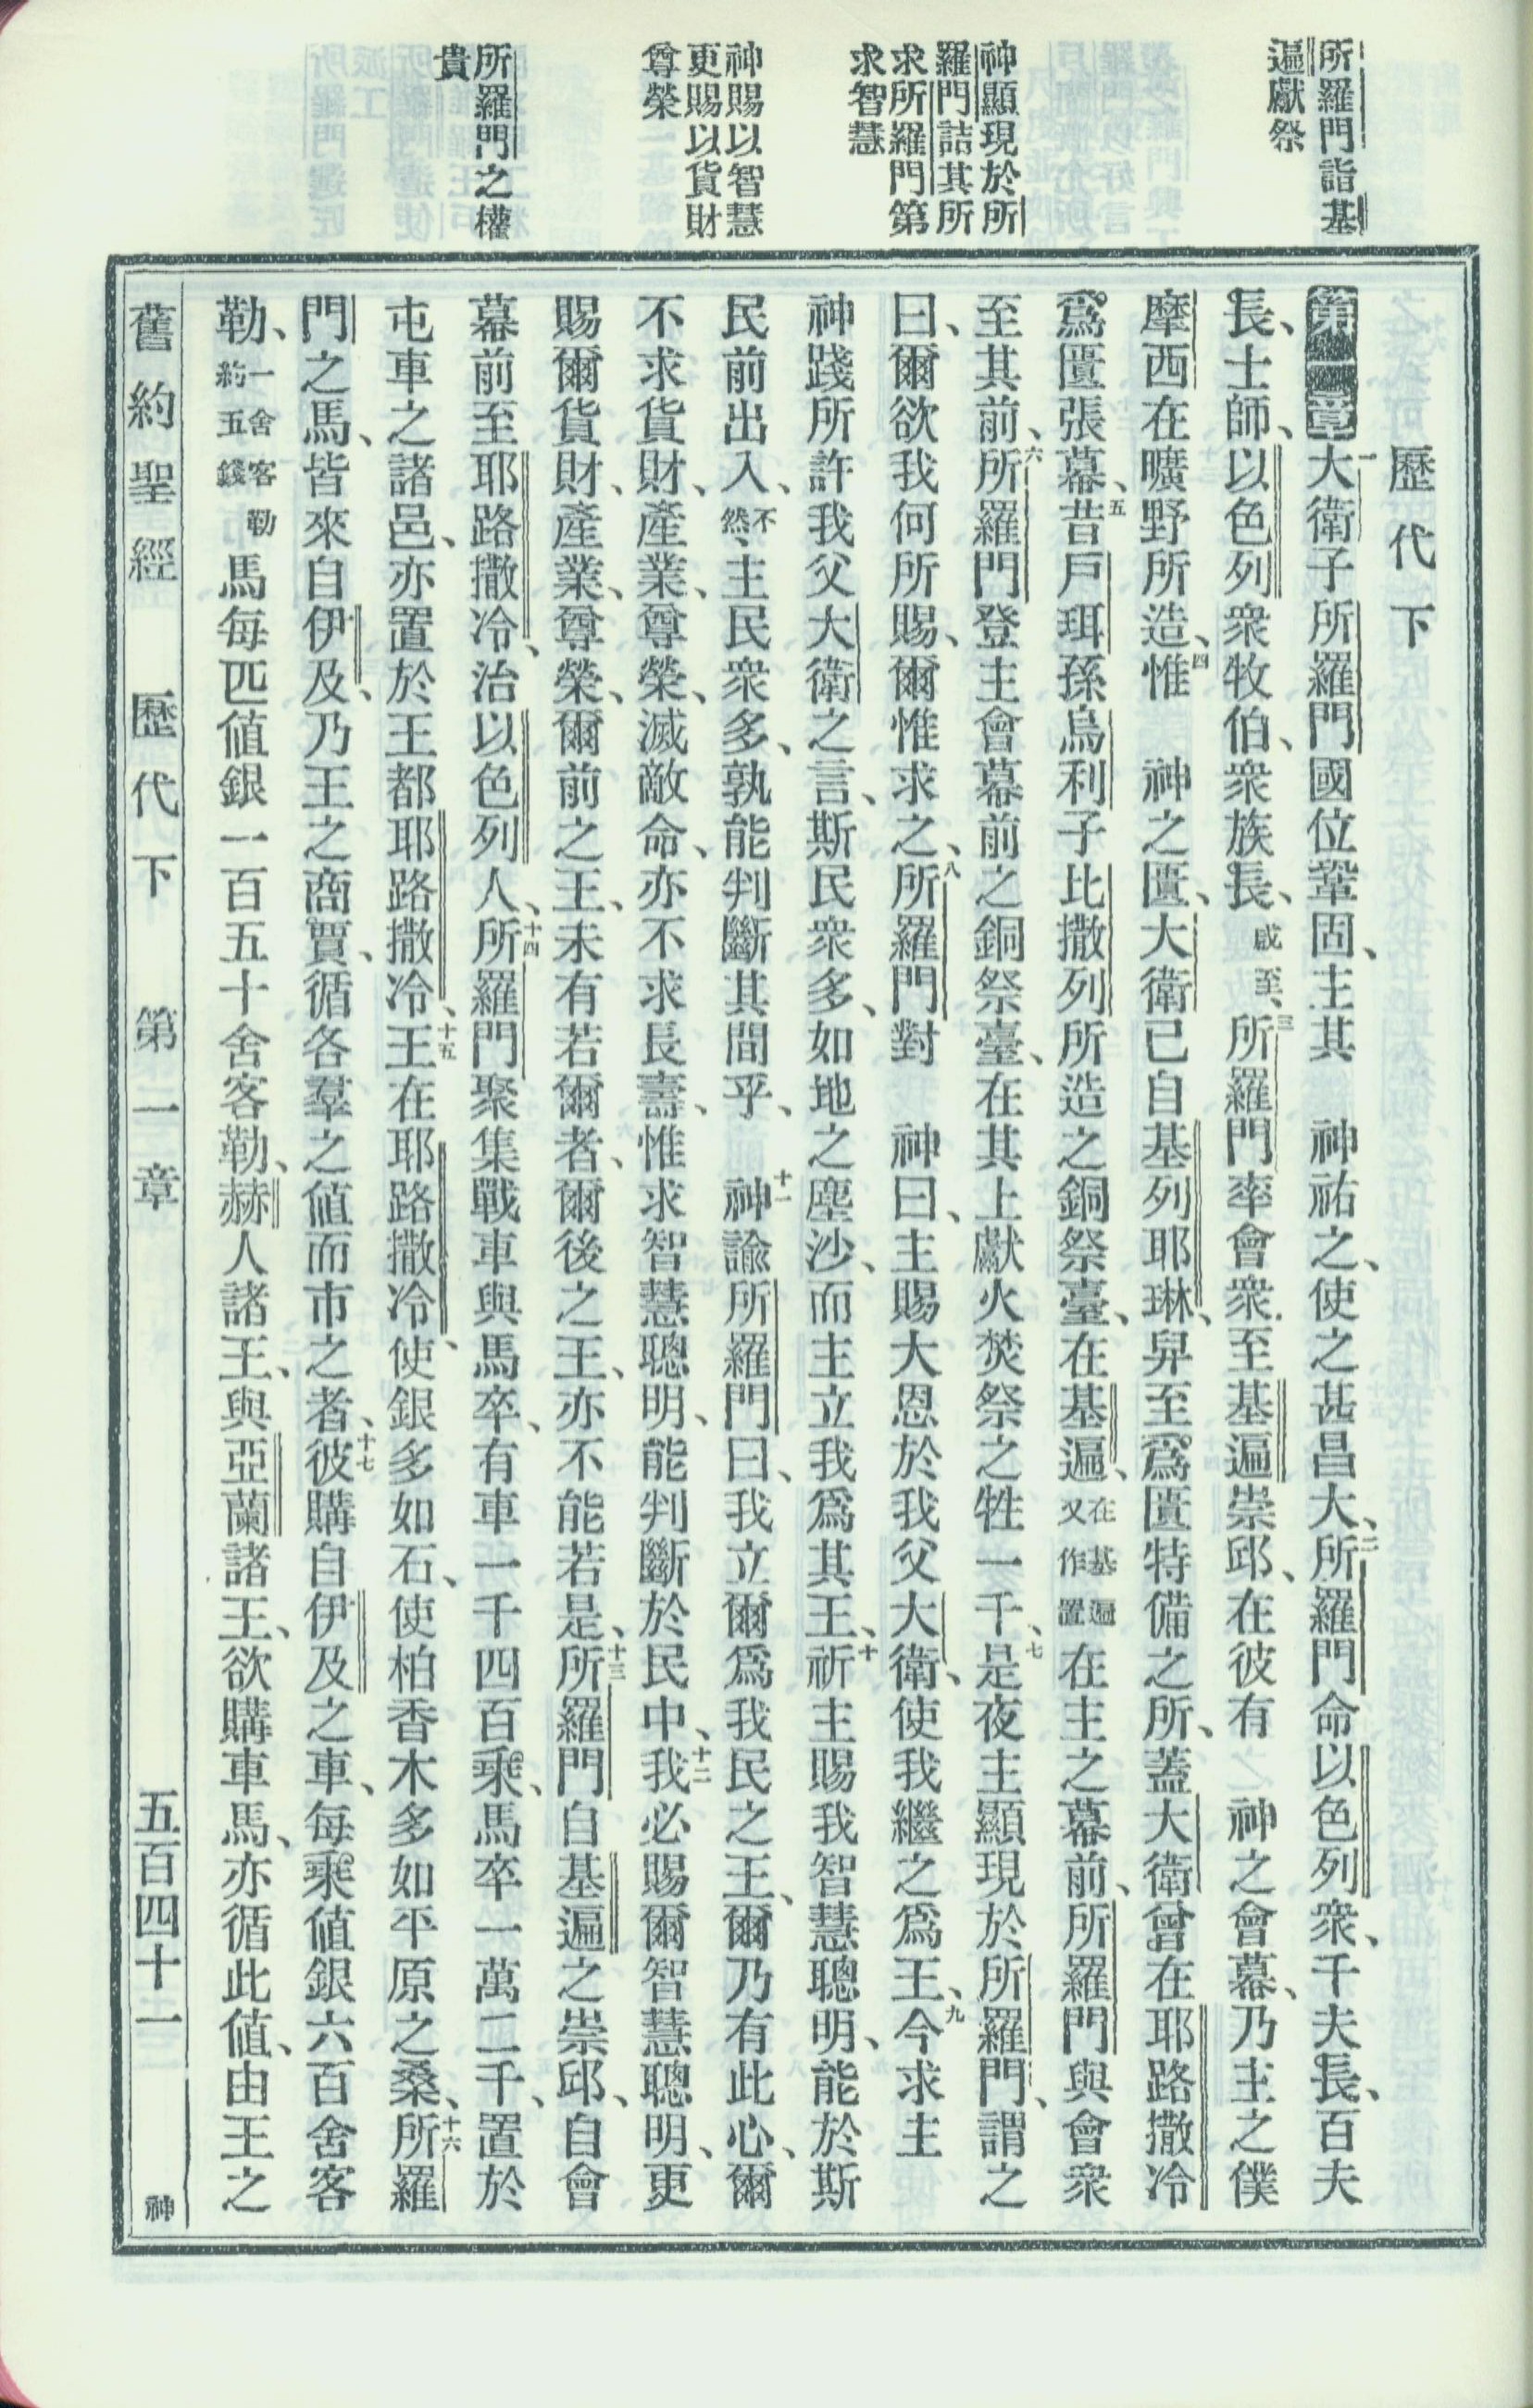 所羅門詣基
遍獻祭
神顯現於所
羅門詰其所
求所羅門第
求智慧
神賜以智慧
更賜以貨財
尊榮
所羅門之權
貴
歷代下
第一章 一大衛子所羅門國位鞏固、主其 神祐之、使之甚昌大、二所羅門命以色列衆、千夫長、百夫
長、士師、以色列衆牧伯、衆族長、咸至、三所羅門率會衆至基遍崇邱、在彼有 神之會幕、乃主之僕
摩西在曠野所造、四惟 神之匱、大衛已自基列耶琳、舁至爲匱特備之所、蓋大衛曾在耶路撒冷
爲匱張幕、五昔戶珥孫烏利子比撒列所造之銅祭臺、在基遍、在基遍又作置在主之幕前、所羅門與會衆
至其前、六所羅門登主會幕前之銅祭臺、在其上獻火焚祭之牲一千、七是夜主顯現於所羅門、謂之
曰、爾欲我何所賜、爾惟求之、八所羅門對 神曰、主賜大恩於我父大衛、使我繼之爲王、九今求主
神踐所許我父大衛之言、斯民衆多、如地之塵沙、而主立我爲其王、十祈主賜我智慧聰明、能於斯
民前出入、不然、主民衆多、孰能判斷其間乎、 十一神諭所羅門曰、我立爾爲我民之王、爾乃有此心、爾
不求貨財、產業、尊榮、滅敵命、亦不求長壽、惟求智慧聰明、能判斷於民中、十二我必賜爾智慧聰明、更
賜爾貨財、產業、尊榮、爾前之王、未有若爾者、爾後之王、亦不能若是、十三所羅門自基遍之崇邱、自會
幕前至耶路撒冷、治以色列人、十四所羅門聚集戰車與馬卒、有車一千四百乘、馬卒一萬二千、置於
屯車之諸邑、亦置於王都耶路撒冷、十五王在耶路撒冷、使銀多如石、使柏香木多如平原之桑、十六所羅
門之馬、皆來自伊及、乃王之商賈、循各羣之値而市之者、十七彼購自伊及之車、每乘値銀六百舍客
勒、一舍客勒約五錢馬每匹値銀一百五十舍客勒、赫人諸王、與亞蘭諸王、欲購車馬、亦循此値、由王之
舊約聖經 歷代下 第一章 五百四十一 神